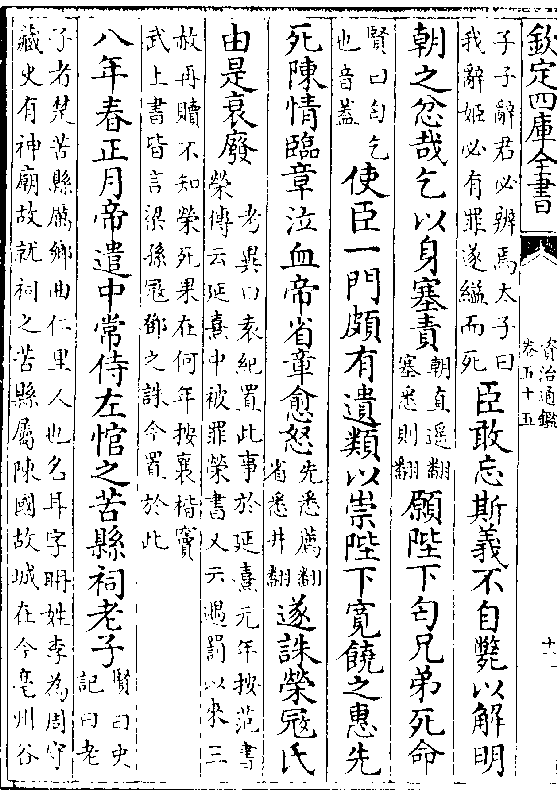 欽定四庫全書
資治通鑑
卷五十五
十一
子子辭君必辨焉太子曰
我辭姬必有罪遂縊而死
臣敢忘斯義不自斃以解明
朝之忿哉乞以身塞責
朝直遥翻
塞悉則翻
願陛下匄兄弟死命
賢曰匄乞
也音葢
使臣一門頗有遺類以崇陛下寛饒之惠先
死陳情臨章泣血帝省章愈怒
先悉薦翻
省悉井翻
遂誅榮寇氏
由是衰廢
考異曰袁紀置此事於延熹元年按范書
榮傳云延熹中被罪榮書又云遇罰以來三
赦再贖不知榮死果在何年按襄楷竇
武上書皆言梁孫寇鄧之誅今置於此
八年春正月帝遣中常侍左悺之苦縣祠老子
賢曰史
記曰老
子者楚苦縣厲鄉曲仁里人也名耳字聃姓李為周守
藏史有神廟故就祠之苦縣屬陳國故城在今亳州谷